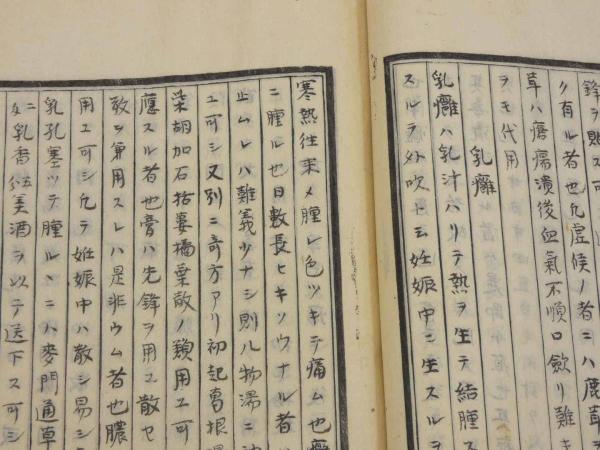 鋒ヲ貼ス可
ク有ル者也凡虚候ノ者ニハ鹿茸
草ハ瘡瘍潰後血氣不順口斂リ難キ
ヲモ代用
乳癰
乳癰ハ乳汁ハリテ熱ヲ生テ結腫ス
スルヲ外吹ト云妊娠中ニ生スルヲ
寒熱往来メ腫レ色ツキテ痛ム也癰
ニ腫ル也日數長ヒキソウナル者ハ
止ムレハ難義少ナシ則ハ物湯ニ
ユ可シ又別ニ奇方アリ初起葛根湯
柴胡加石括蔞橘葉散ノ類用ユ可
應スル者也膏ハ先鋒ヲ用ユ散セ
散ヲ兼用スレハ是非ウム者也膿
用ユ可シ凢テ妊娠中ハ散シ易シ
乳孔塞ツテ腫ルヽニハ麥門通草
ニ乳香 美酒ヲ以テ送下ス可シ